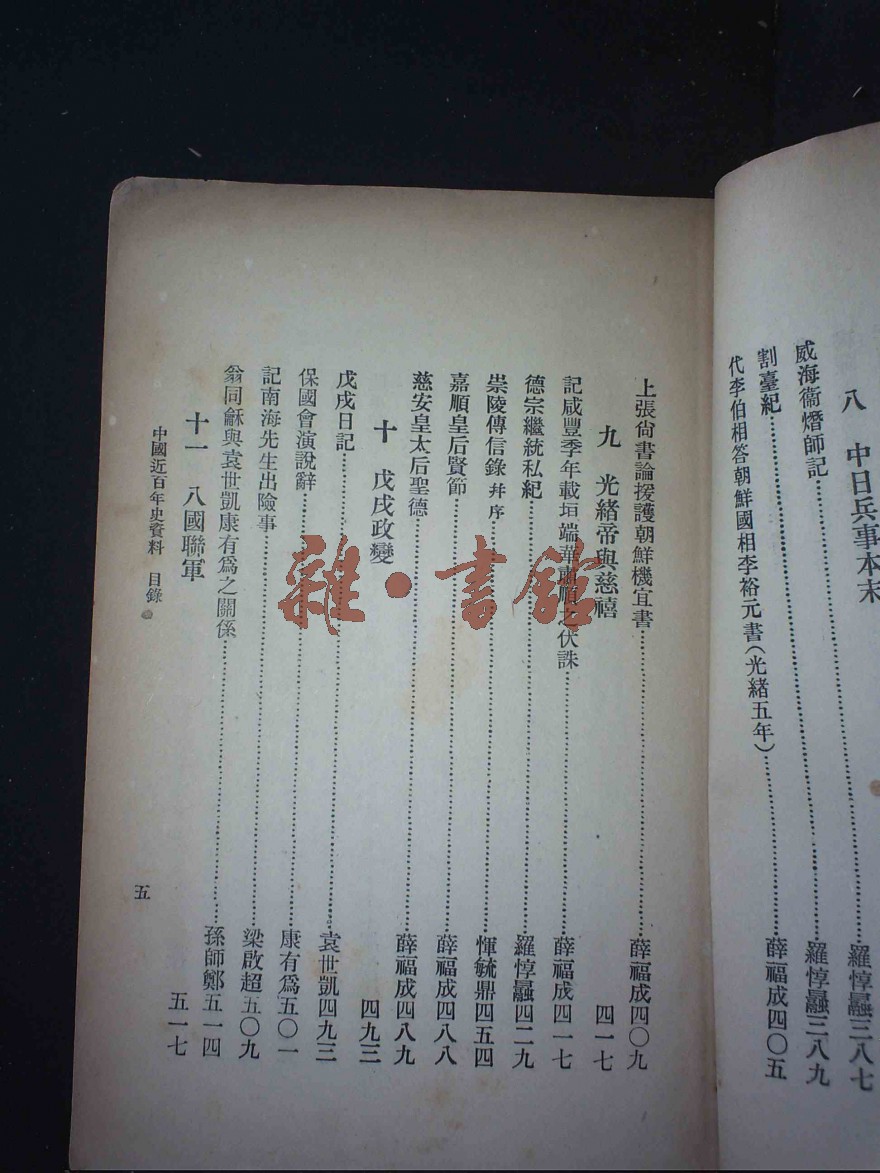 八　中日兵事本末
威海衞熸師記………羅惇曧三八七
割臺紀………羅惇曧三八九
代李伯相答朝鮮國相李裕元書(光緒五年)………薛福成四〇五
上張尙書論援護朝鮮機宜書………薛福成四〇九
九　光緒帝與慈禧　四一七
記咸豐季年載垣端華肅順之伏誅………薛福成四一七
德宗繼統私紀………羅惇曧四二九
崇陵傳信錄 幷序………惲毓鼎四五四
嘉順皇后賢節………薛福成四八八
慈安皇太后聖德………薛福成四八九
十　戊戌政變　四九三
戊戌日記………袁世凱四九三
保國會演說辭………康有爲五〇一
記南海先生出險事………梁啟超五〇九
翁同龢與袁世凱康有爲之關係………孫師鄭五一四
十一　八國聯軍　五一七
中國近百年史資料　目錄
五
雜·書館